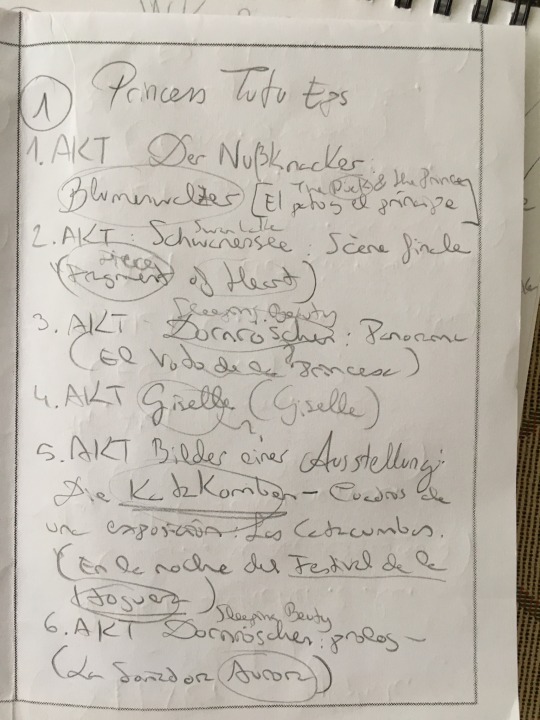 1 Princess Tutu Eps
1. AKT Der Nußknacker:
Blumenwalzer [El pato y el príncipe
The Duck & the Prince]
2. AKT: Schwanensee: Scène finale
Swan Lake
(Fragment of Heart)
Piece
Sleeping Beauty
3. AKT Dornröschen: Panorama
(El Voto de la Princesa)
4. AKT Giselle (Giselle)
5. AKT Bilder einer Ausstellung:
Die Katzkomben - Cuadros de
una exposición: Las Catacumbas.
(En la noche del Festival de la
Hoguera)
Sleeping Beauty
6. AKT Dornröschen: prolog -
(La Soñadora Aurora)